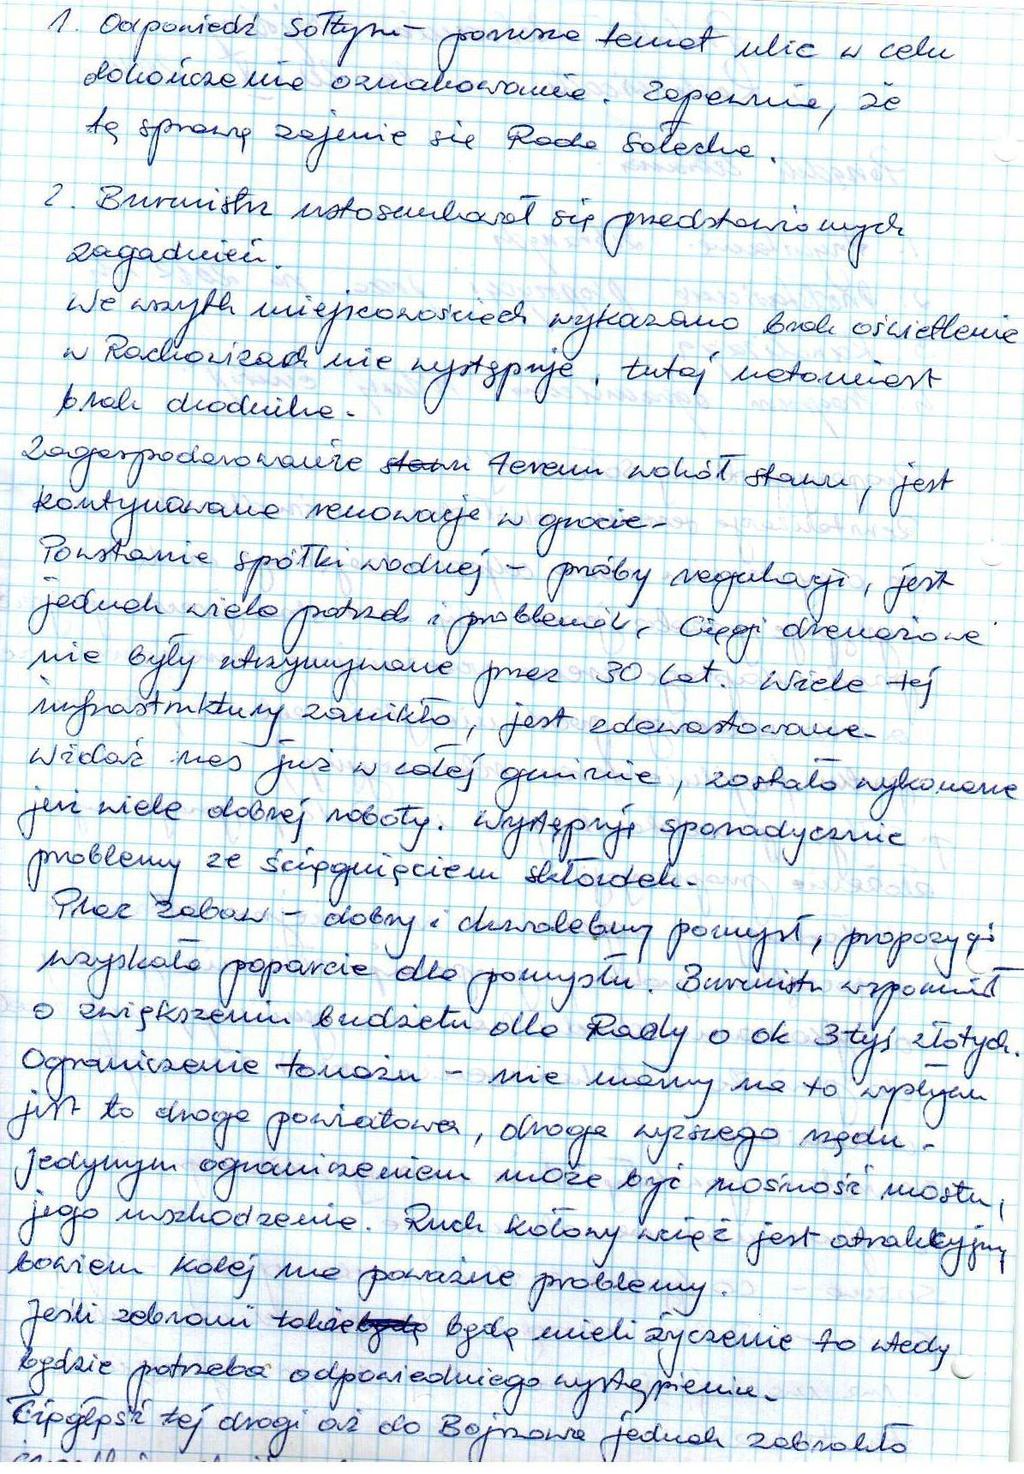 1. Odpowiedź Sołtysa – porusza temat ulic w celu
dokończenia oznakowania. Zapewnia, że
tą sprawą zajmie się Rada Sołecka.
2. Burmistrz ustosunkował się przedstawionych
zagadnień.
We wszytk miejscowościach wykazano brak oświetlenia
w Rachowicach nie występuje, tutaj natomiast
brak chodnika.
Zagospodarowanie terenu wokół stawu, jest
kontynuowana renowacja w grocie.
Powstanie spółki wodnej – próby regulacji, jest
jednak wiele potrzeb i problemów. Ciągi drenażowe
nie były utrzymywane przez 30 lat. Wiele tej
infrastruktury zanikło, jest zdewastowane.
Widać nas już w całej gminie, została wykonane
już wiele dobrej roboty. Występują sporadycznie
problemy ze ściągnięciem składek.
Plac zabaw – dobry i chwalebny pomysł, propozycja
uzyskała poparcie dla pomysłu. Burmistrz wspomniał
o zwiększeniu budżetu dla Rady o ok 3 tyś złotych.
Ograniczenie tonażu – nie mamy na to wpływu
jest to droga powiatowa, droga wyższego rzędu.
jedynym ograniczeniem może być nośność mostu,
jego uszkodzenie. Ruch kołowy wciąż jest atrakcyjny
bowiem kolej ma poważne problemy.
Jeśli zebrani takie będą mieli życzenie to wtedy
będzie potrzeba odpowiedniego wystąpienia.
Ciągłość tej drogi aż do Bojszowa jednak zabrakło